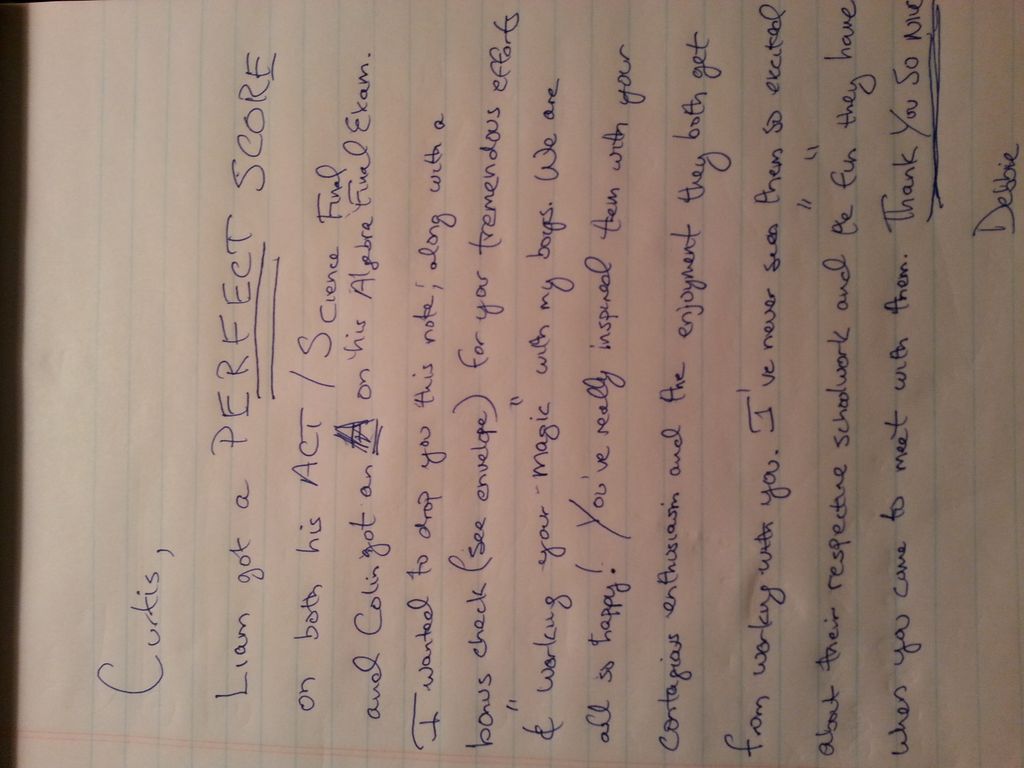 Curtis,
Liam got a PERFECT SCORE
on both his ACT / Science Final
and Colin got an A on his Algebra Final Exam.
I wanted to drop you this note; along with a
bonus check (see envelope) for your tremendous efforts
& "working your magic" with my boys. We are
all so happy! You've really inspired them with your
contagious enthusiasm and the enjoyment they both get
from working with you. I've never seen them so excited
about their respective schoolwork and the "fun" they have
when you come to meet with them. Thank You So
Debbie